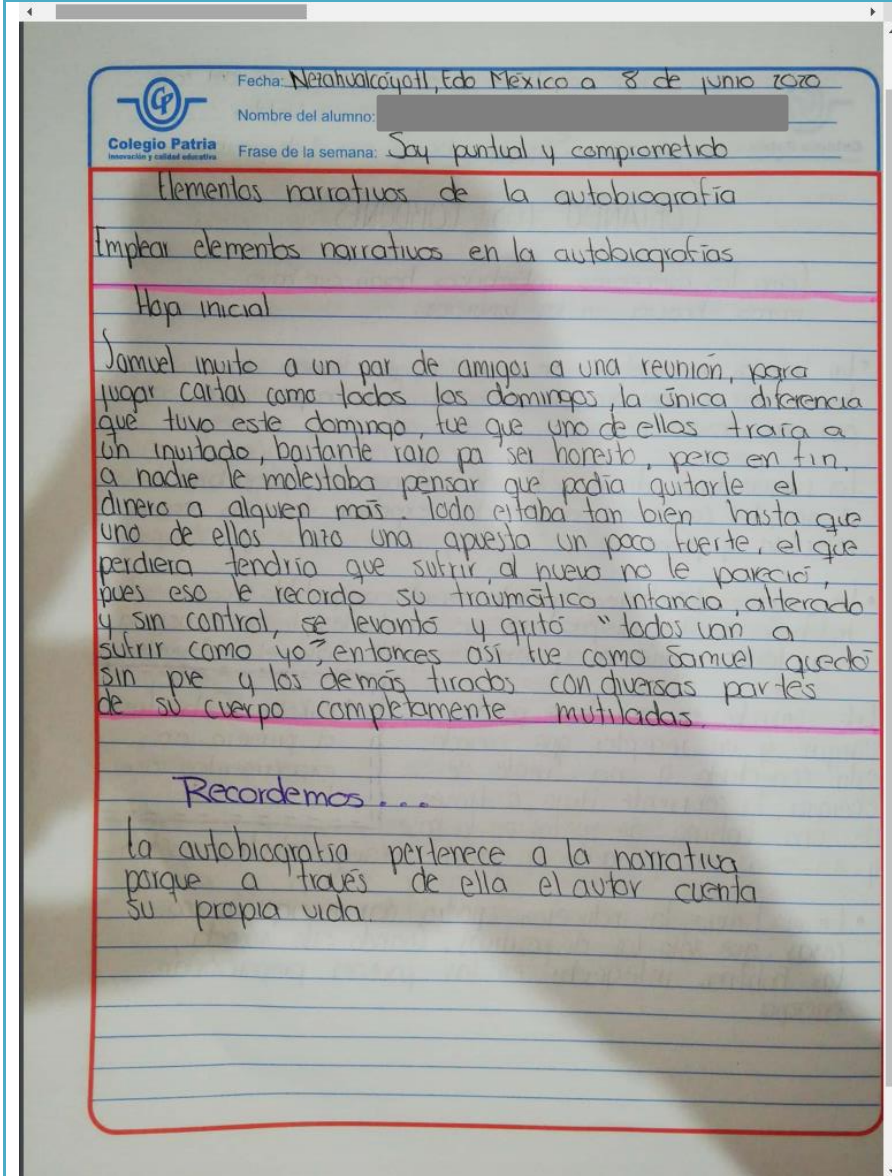 Fecha: Nezahualcóyotl, Edo México a 8 de junio 2020
Nombre del alumno:
Colegio Patria
Innovación y calidad educativa
Frase de la semana: Soy puntual y comprometido
Elementos narrativos de la autobiografía
Emplear elementos narrativos en la autobiografías
Hoja inicial
Samuel invito a un par de amigos a una reunión, para
jugar cartas como todos los domingos, la única diferencia
que tuvo este domingo, fue que uno de ellos traía a
un invitado, bastante raro pa ser honesto, pero en fin.
a nadie le molestaba pensar que podía quitarle el
dinero a alguien más. Todo estaba tan bien hasta que
uno de ellos hizo una apuesta un poco fuerte, el que
perdiera tendría que sufrir, al nuevo no le pareció,
pues eso le recordo su traumático infancia, alterado
y sin control, se levantó y gritó "todos van a
sufrir como yo", entonces así fue como Samuel quedó
sin pie y los demás tirados con diversas partes
de su cuerpo completamente mutiladas.
Recordemos...
La autobiografía pertenece a la narrativa
porque a través de ella el autor cuenta
su propia vida